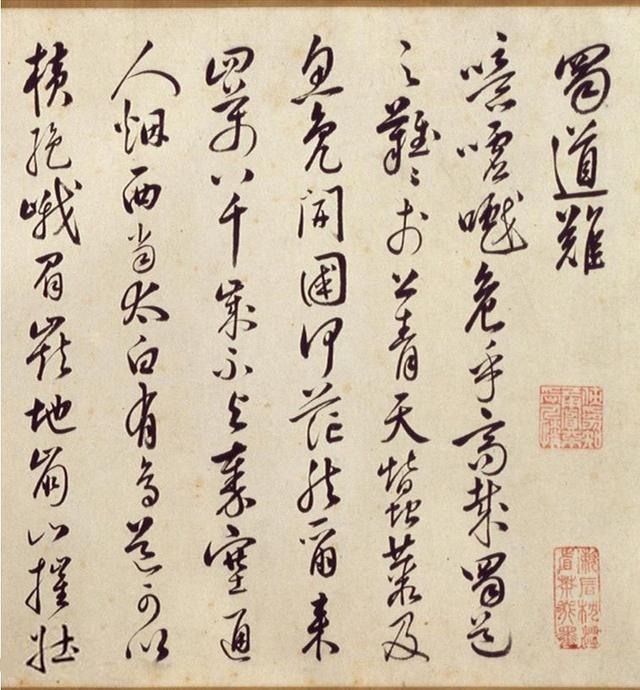 蜀道難
噫嘘嚱危乎高哉蜀道
之難〻於上青天蠶叢及
魚鳧開國何茫然爾來
四萬八千歲不與秦塞通
人烟西當太白有鳥道可以
橫絕峨眉巔地崩山摧壯